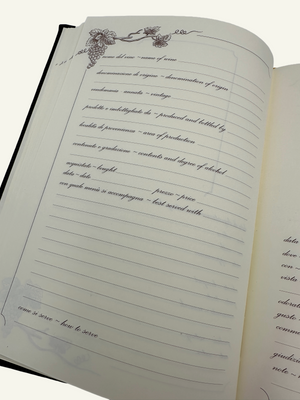 nome del vino ~ name of wine
denominazione di origine ~ denomination of origin
vendemmia annata ~ vintage
prodotto e imbottigliato da ~ produced and bottled by
località di provenienza ~ area of production
contenuto e gradazione ~ contents and degree of alcohol
acquistato ~ bought prezzo ~ price
data ~ date
con quale annata si accompagna ~ best served with
come si serve ~ how to serve
data
dove
con ~
vista
odorato
gusto
comme
gradazio
note ~